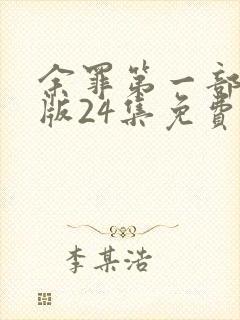 余罪第一部
版24集免费
李某浩